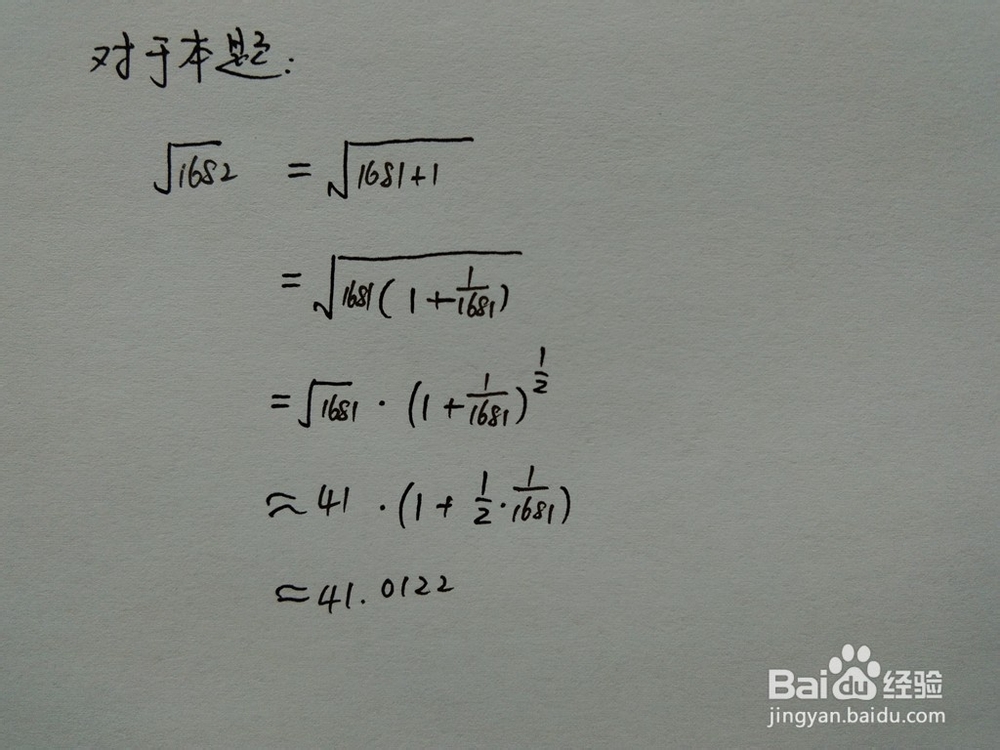 对于本题:
√1682 = √1681+1
= √1681(1+1/1681)
= √1681 · (1+1/1681)^1/2
≈ 41 · (1+1/2·1/1681)
≈ 41.0122
Baidu 经验
jingyan.baidu.com